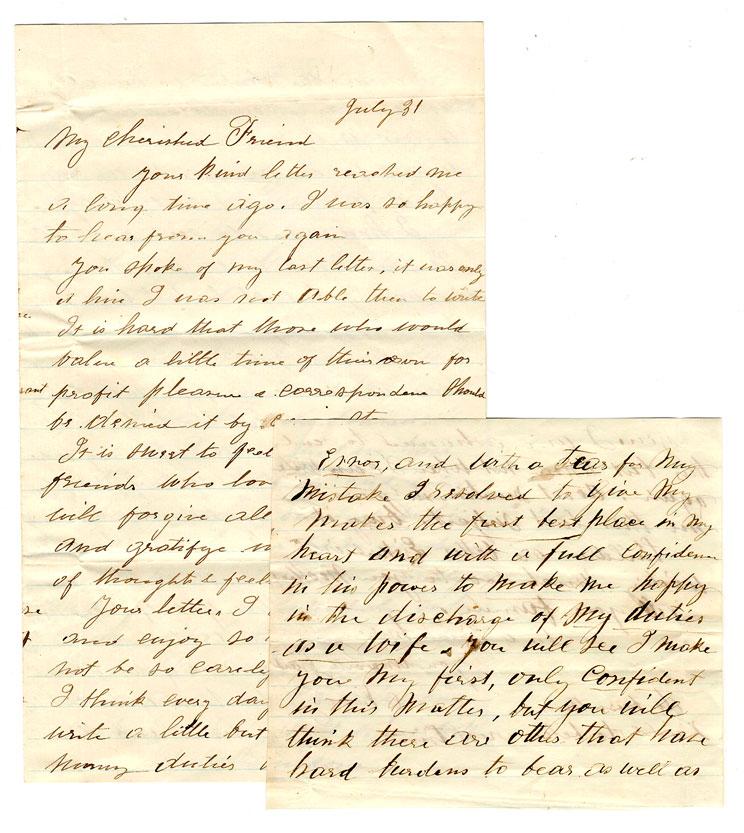 July 31
My cherished Friend
your kind letter reached me
a long time ago. I was so happy
to hear from you again
You spoke of my last letter, it was only
a line I was not able then to write
It is hard that those who would
value a little time of their own for
profit pleasure & correspondence should
be denied it by
It is sweet to feel
friends who lov
will forgive all
and gratifye
of thoughts & feel
Your letters I
and enjoy so
not be so carely
I think every day
write a little but
many duties
Error, and with a tear for my
mistake I resolved to give my
maker the first best place in my
heart and with a full confidence
in his power to make me happy
in the discharge of my duties
as a wife. You will see I make
you my first, only confident
in this matter, but you will
think there are others that have
hard burdens to bear as well as